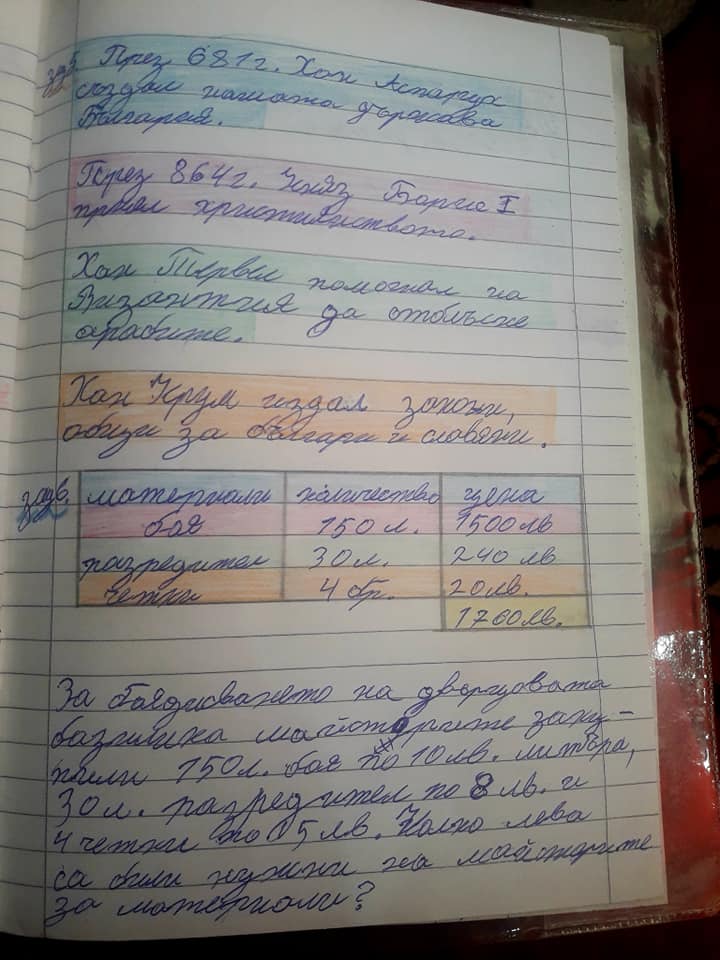 зад5. През 681г. Хан Аспарух
създал нашата държава
България.
През 864г. Княз Борис I
приел християнството.
Хан Тервел помогнал на
Византия да отблъсне
арабите.
Хан Крум издал закони,
общи за българи и славяни.
зад6. материали количество цена
боя 150л. 1500лв
разредител 30л. 240лв
четки 4бр. 20лв.
1760лв.
За боядисването на дворцовата
базилика майсторите заку-
пили 150л. боя по 10лв. литъра,
30л. разредител по 8лв. и
4 четки по 5лв. Колко лева
са били нужни на майсторите
за материали?